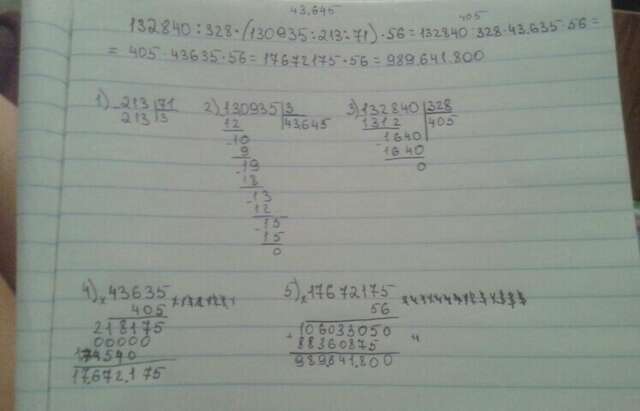 43.645
405
132840:328·(130935:213:71)·56=132840:328·43.635·56=
= 405·43635·56=17672175·56=989.641.800
1) 213 71 2) 130935 3 3) 132840 328
213 3 12 43.645 1312 405
-10 -1640
9 1640
-19 0
18
-13
12
-15
15
0
4) x 43635 5) x 17672175
405 56
218175 106033050
00000 88360875
174540 989.841.800
17.672.175